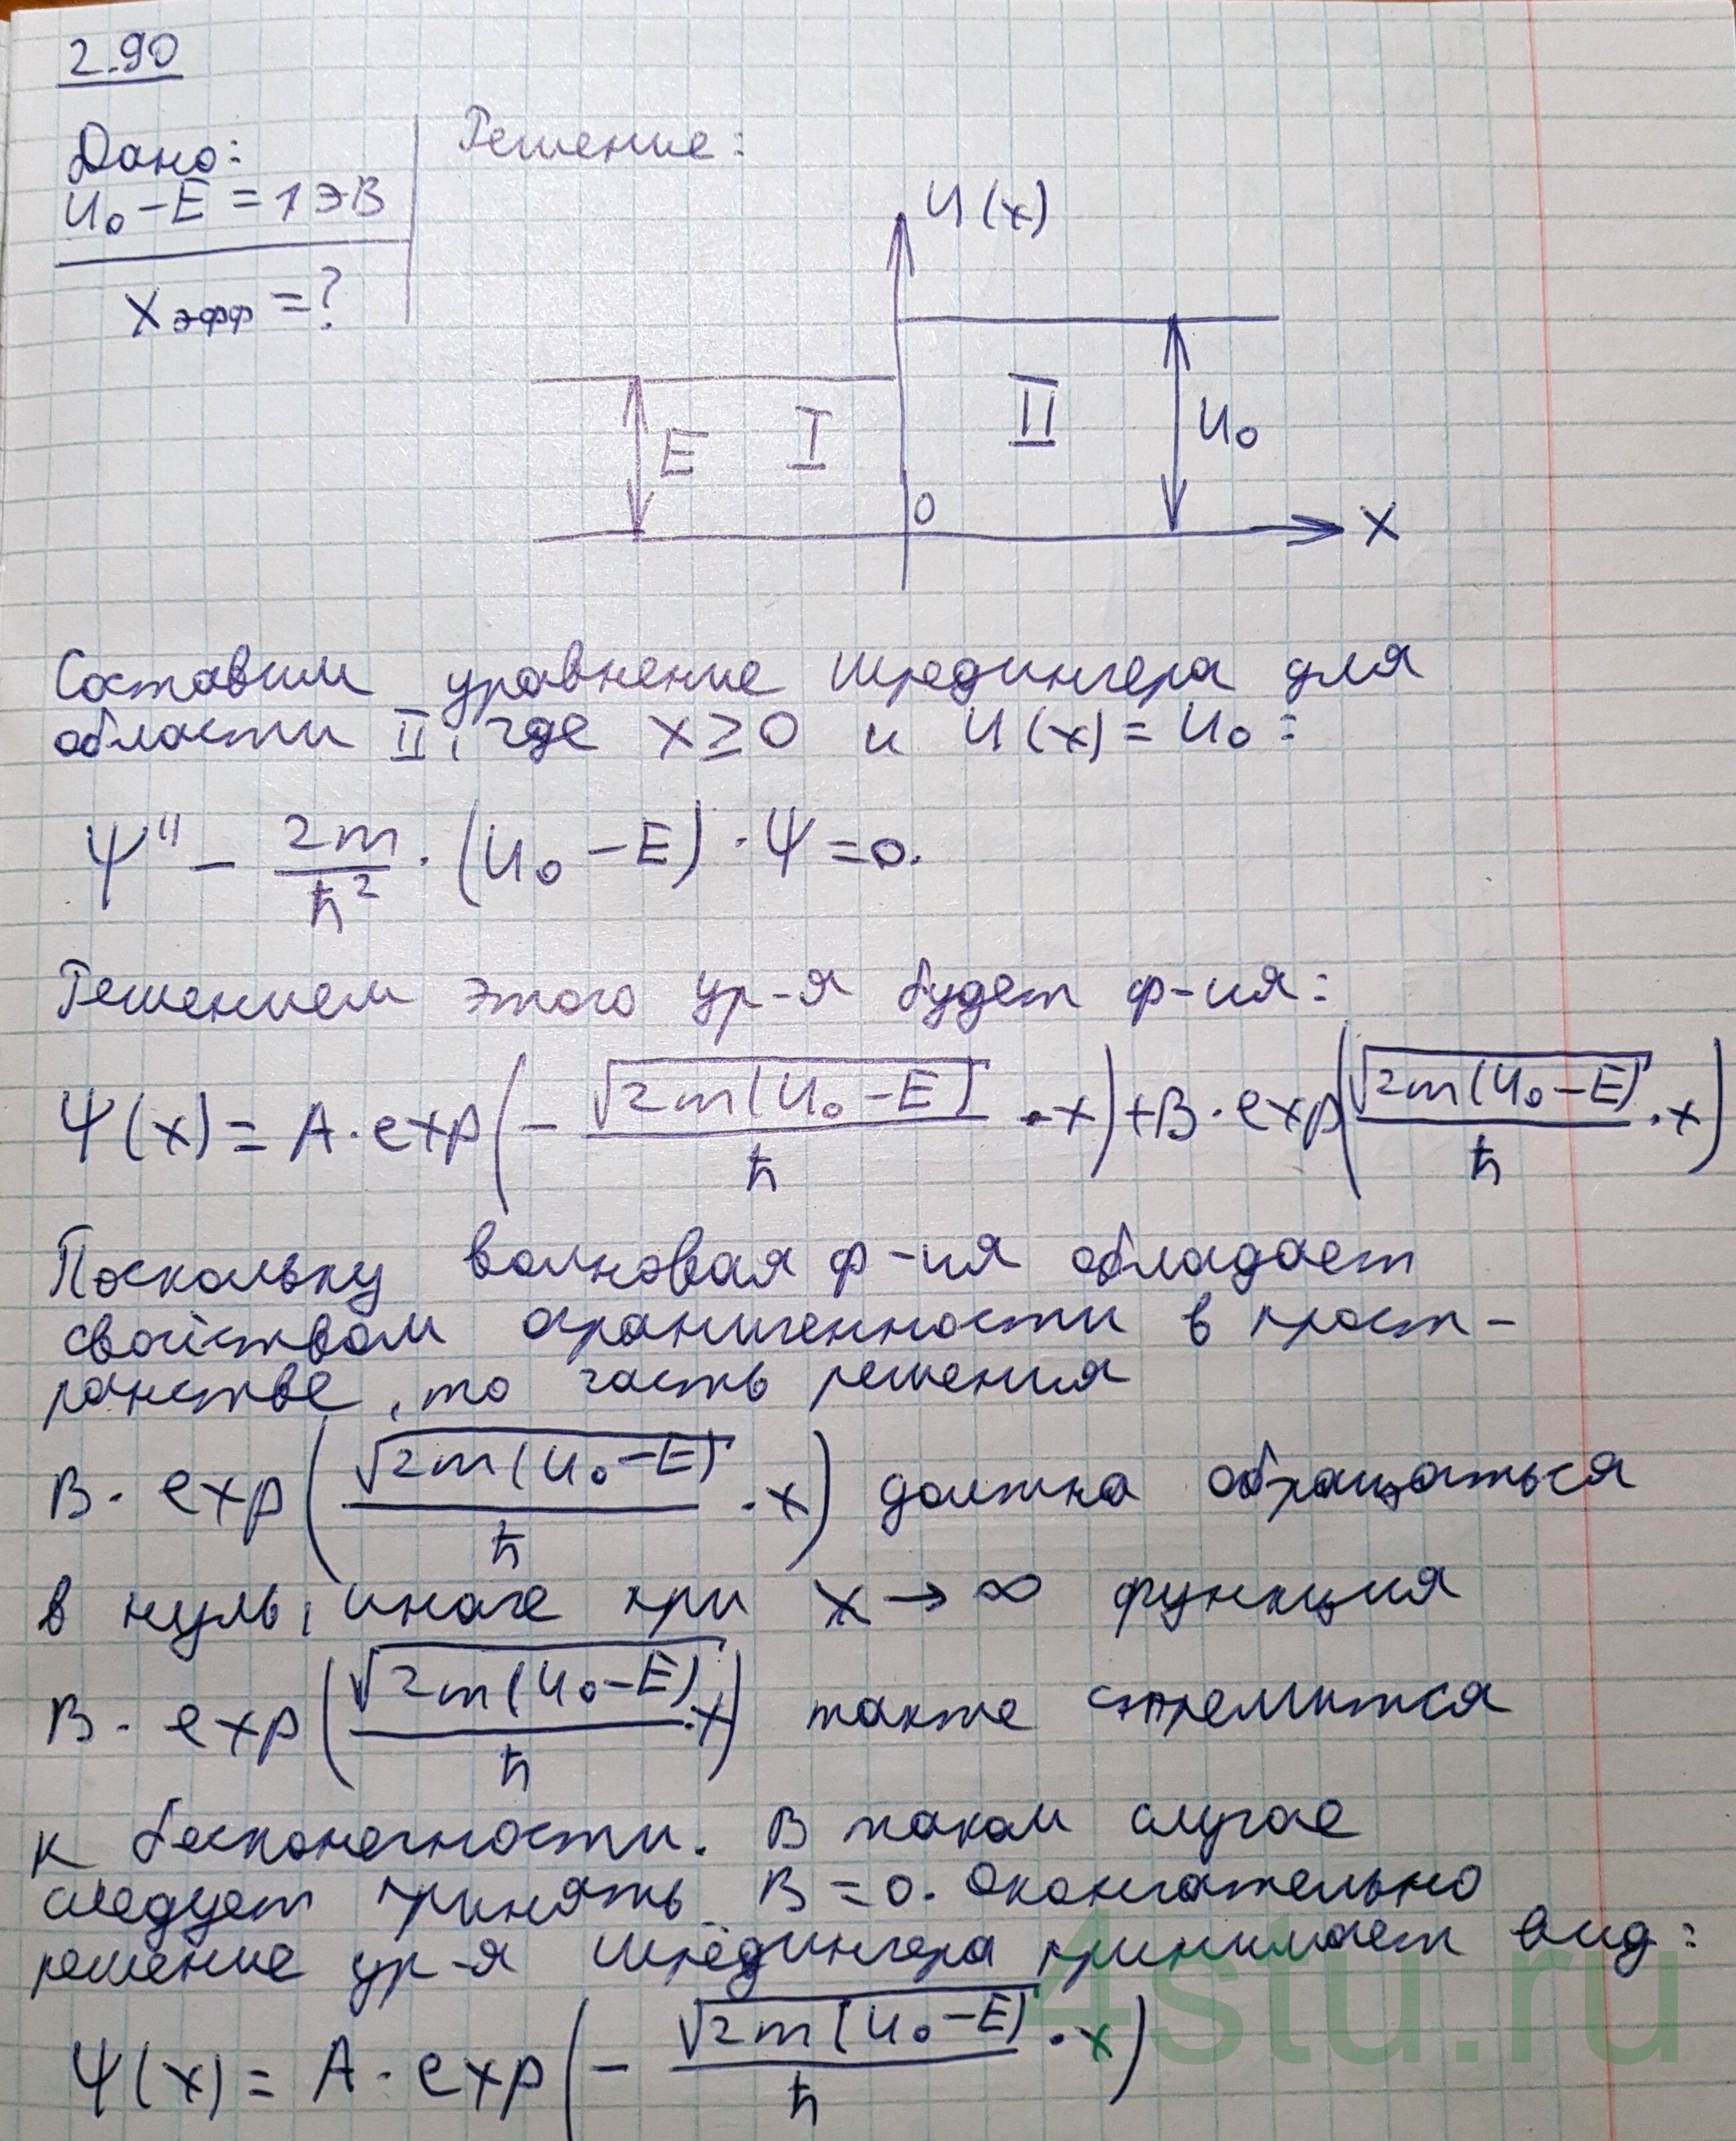 2.90
Дано:
U₀ - E = 1 эВ
x эфф = ?
Решение:
U(x)
E
I
II
U₀
0
x
Составим уравнение Шредингера для
области II, где x ≥ 0 и U(x) = U₀:
Ψ'' - 2m/ħ² · (U₀ - E) · Ψ = 0.
Решением этого ур-я будет ф-ия:
Ψ(x) = A · exp(- √2m(U₀ - E)/ħ · x) + B · exp(√2m(U₀ - E)/ħ · x)
Поскольку волновая ф-ия обладает
свойством ограниченности в прост-
ранстве, то часть решения
B · exp(√2m(U₀ - E)/ħ · x) должна обращаться
в нуль, иначе при x → ∞ функция
B · exp(√2m(U₀ - E)/ħ · x) также стремится
к бесконечности. В таком случае
следует принять B = 0. Окончательно
решение ур-я Шрёдингера принимает вид:
Ψ(x) = A · exp(- √2m(U₀ - E)/ħ · x)
4stu.ru